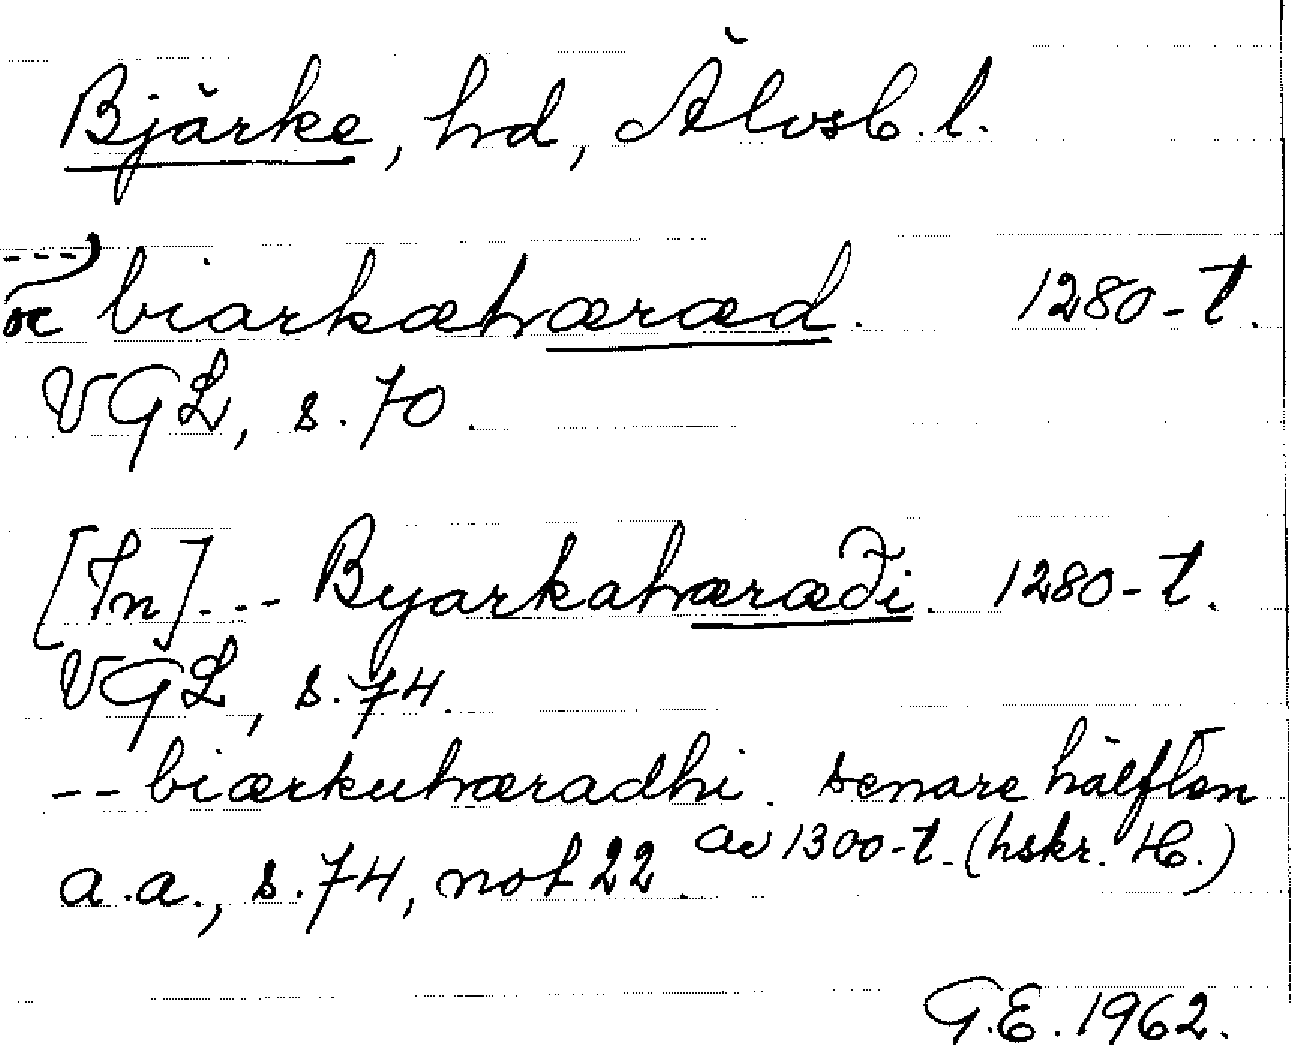 Bjärke, hd, Älvsb. l.
--- oc biarkæhæræd. 1280-t.
VGL, s. 70.
[In] --- Byarkahæræði. 1280-t.
VGL, s. 74.
-- biærkuhæradhi. senare hälften
av 1300-t. (hskr. H.)
a.a., s. 74, not 22.
G.E. 1962.